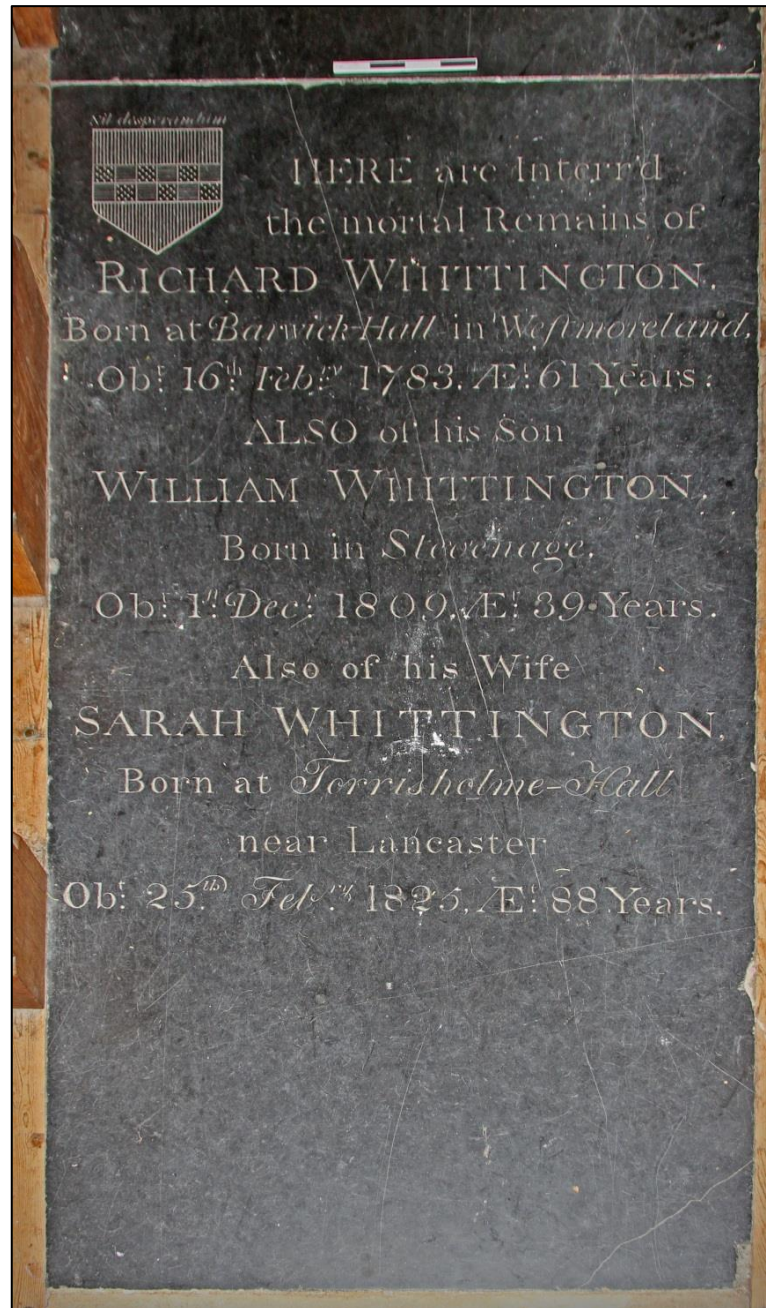 Nil desperandum
HERE are Interr'd
the mortal Remains of
RICHARD WHITTINGTON,
Born at Barwick-Hall in Weſtmoreland,
Obt. 16th. Febry. 1783. Æt. 61 Years.
ALSO of his Son
WILLIAM WHITTINGTON,
Born in Stevenage,
Obt. 1st. Decr. 1809, Æt. 39 Years.
Also of his Wife
SARAH WHITTINGTON,
Born at Torrisholme-Hall
near Lancaster
Obt. 25th. Febry. 1825, Æt. 88 Years.